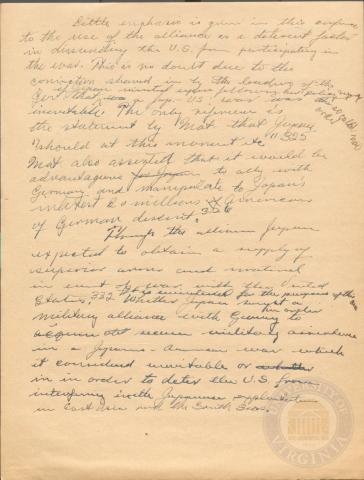 Little emphasis is given in this
to the use of the alliance as a deterent factor
in dissuading the U.S. from participating in
the war. This is no doubt due to the
conviction shared in by the leaders of the
Gov't that a Jap-U.S. war was
inevitable. The only reference is
the statement by Mat that Japan
"should at this moment etc." 325
Mat also asserted that it would be
advantageous for Japan to ally with
Germany and manipulate to Japan's
interest 20 millions of Americans
of German descent. 326
Through the alliance Japan
expected to obtain a supply of
superior arms and material
in event of war with the United
States, 332 Whether Japan sought a
military alliance with Germany in order to
acquire secure military assistance
in a Japanese-American war which
it considered inevitable or
in in order to deter the U.S. from
interfering with Japanese
in East Asia and the South Seas.
UNIVERSITY OF VIRGINIA